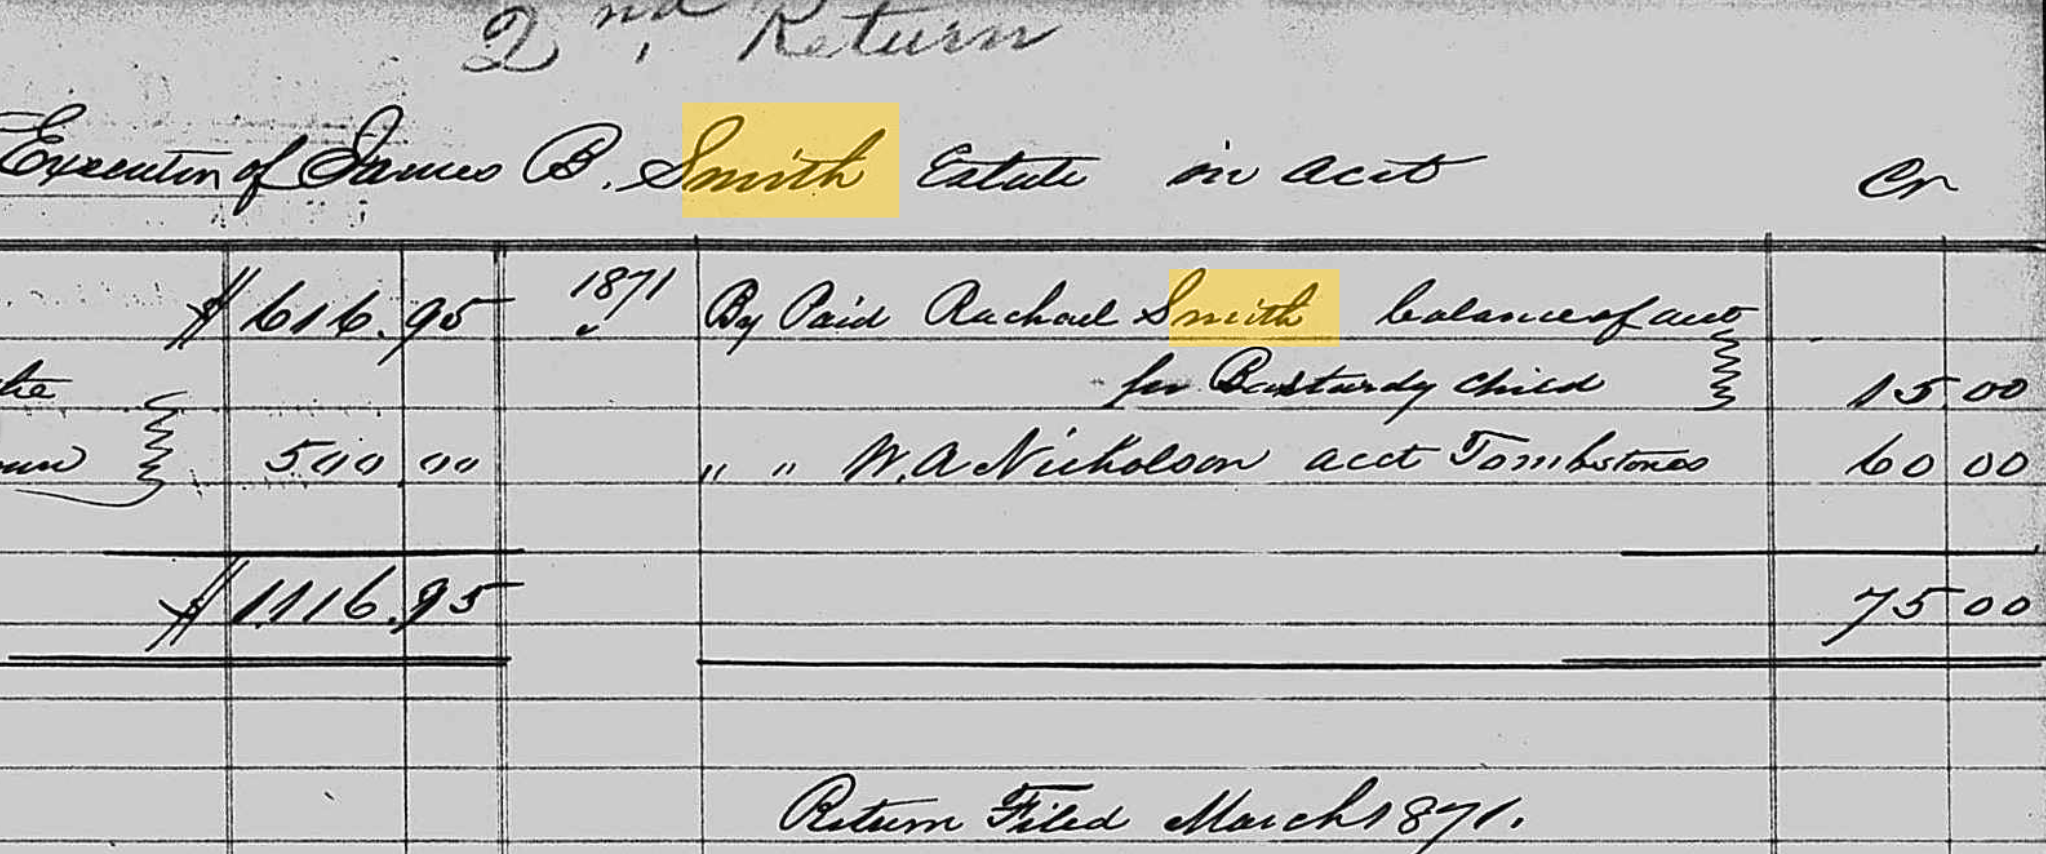 2nd. Return
Executor of James B. Smith Estate in acct Cr
$616.95 1871 By Paid Rachael Smith balance of acct
for Bastardy Child 15 00
500 00 " " W. A Nickolson acct Tombstones 60 00
$1116.95 75 00
Return Filed March 1871.